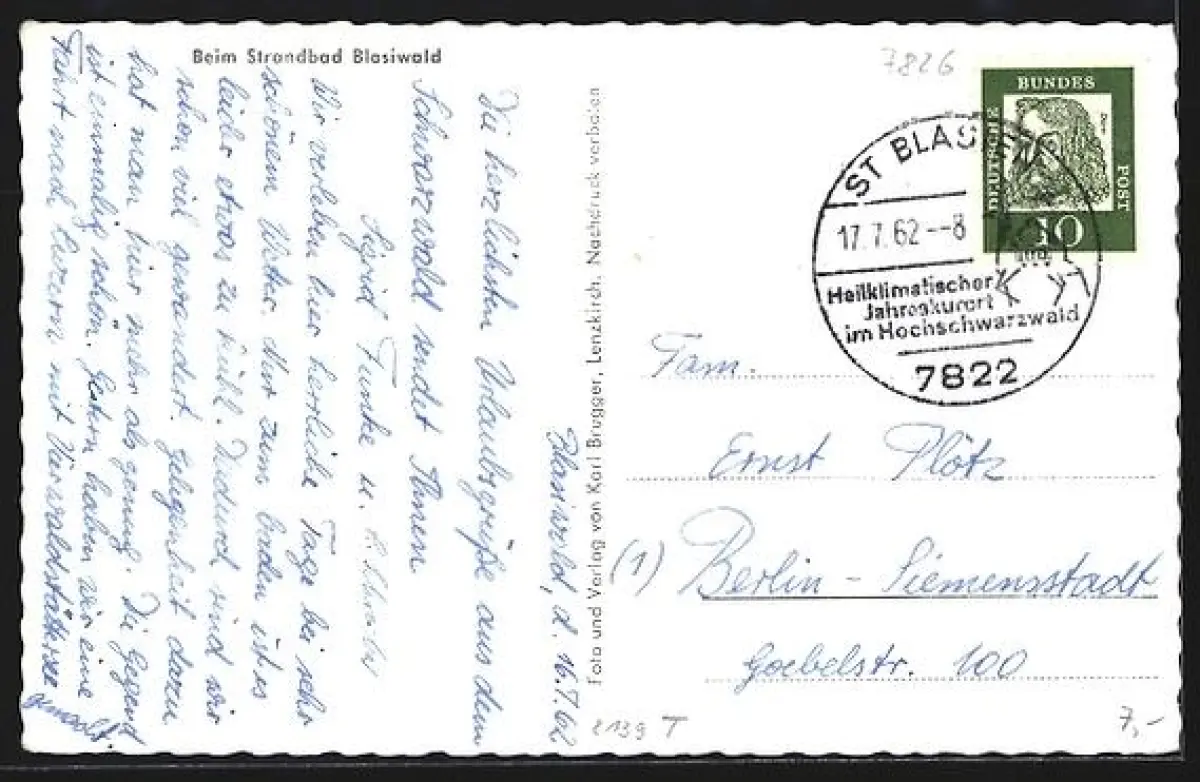 Beim Strandbad Blasiwald
Blasiwald, d. 16.7.62
Die herzlichsten Urlaubsgrüße aus dem
Schwarzwald sendet Ihnen
Sigrid u.
Wir verleben hier herrliche Tage bei sehr
schönem Wetter. Nur zum Baden ist es
leider etwas zu kühl. Dadurch sind wir
schon viel gewandert. Gelegenheit dazu
hat man hier mehr als genug. Die Gegend
ist einmalig schön. Gestern haben wir eine
Fahrt nach Luzern mit Vierwaldstättersee
gemacht.
Foto und Verlag von Karl Brugger, Lenzkirch. Nachdruck verboten
7826
DEUTSCHE
BUNDES
POST
10
ST BLAS
17.7.62--8
Heilklimatischer
Jahreskurort
im Hochschwarzwald
7822
Fam.
Ernst Plötz
(1) Berlin - Siemensstadt
Goebelstr. 100
2139 T
7,-